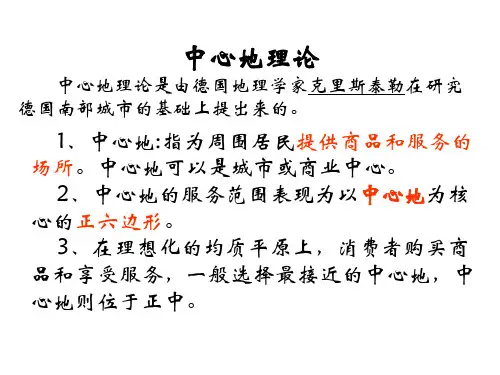 中心地理论
中心地理论是由德国地理学家克里斯泰勒在研究
德国南部城市的基础上提出来的。
1、中心地:指为周围居民提供商品和服务的
场所。中心地可以是城市或商业中心。
2、中心地的服务范围表现为以中心地为核
心的正六边形。
3、在理想化的均质平原上，消费者购买商
品和享受服务，一般选择最接近的中心地，中
心地则位于正中。